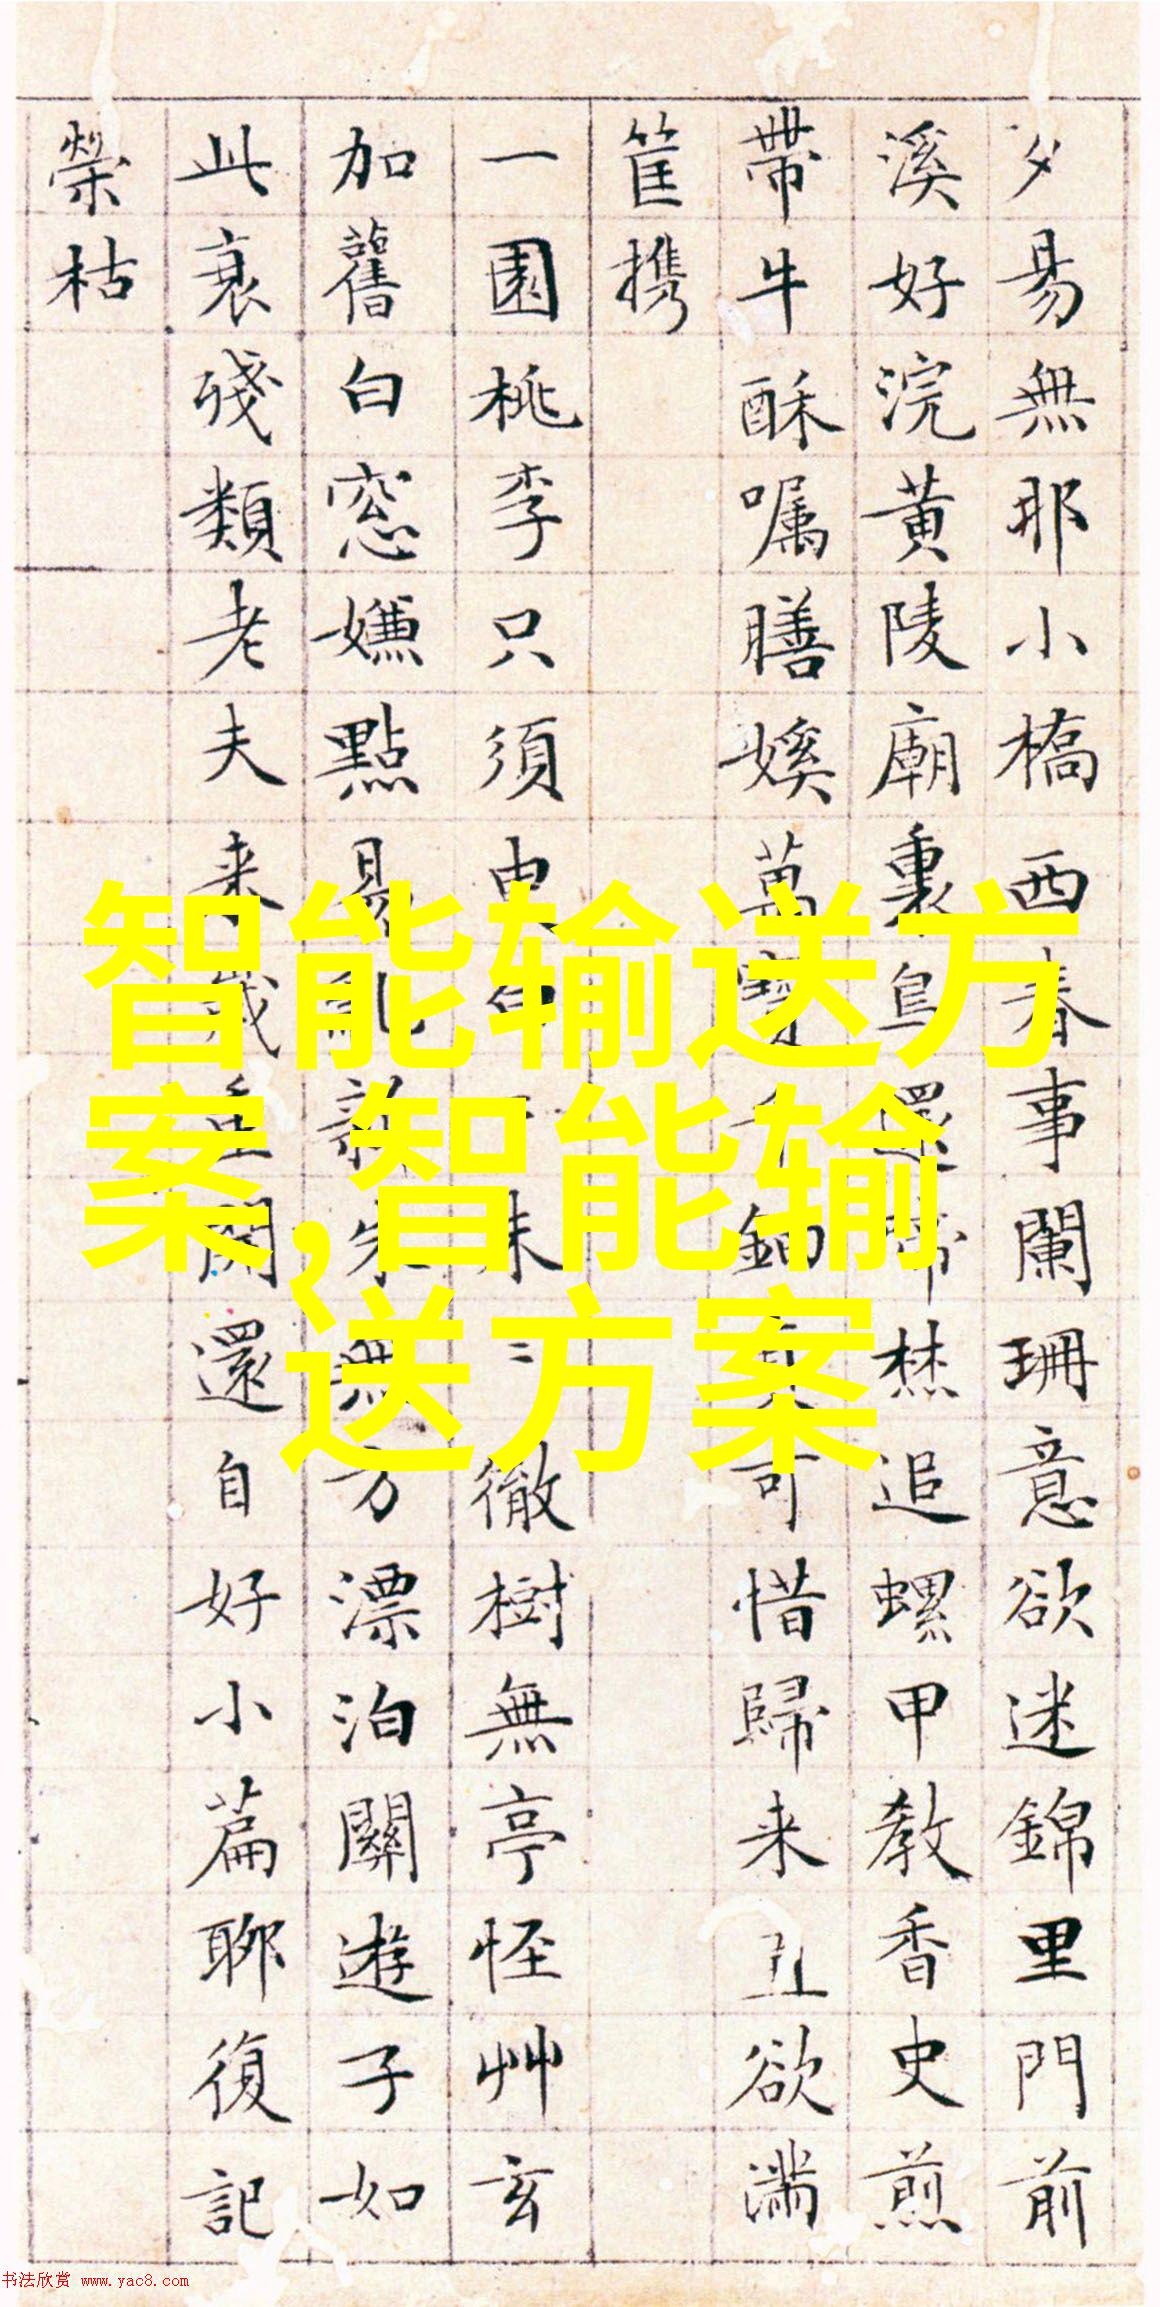 夕易無耶小橋西春事闌珊意欲迷錦里門前
溪好浣黃陵廟裏鳥還啼焚追螺甲教香史煎
帶牛酥嘱膳㜎萬鈿可惜歸来丑欲滿
筐携
一園桃李只須朱徹樹無亭怪艸玄
加舊白窓嫌點易無方漂泊關遊子如
此衰殘類老夫来歲開還自好小篇聊復記
榮枯
智能输送方
案,智能输
送方案
书法欣赏 www.yac8.com